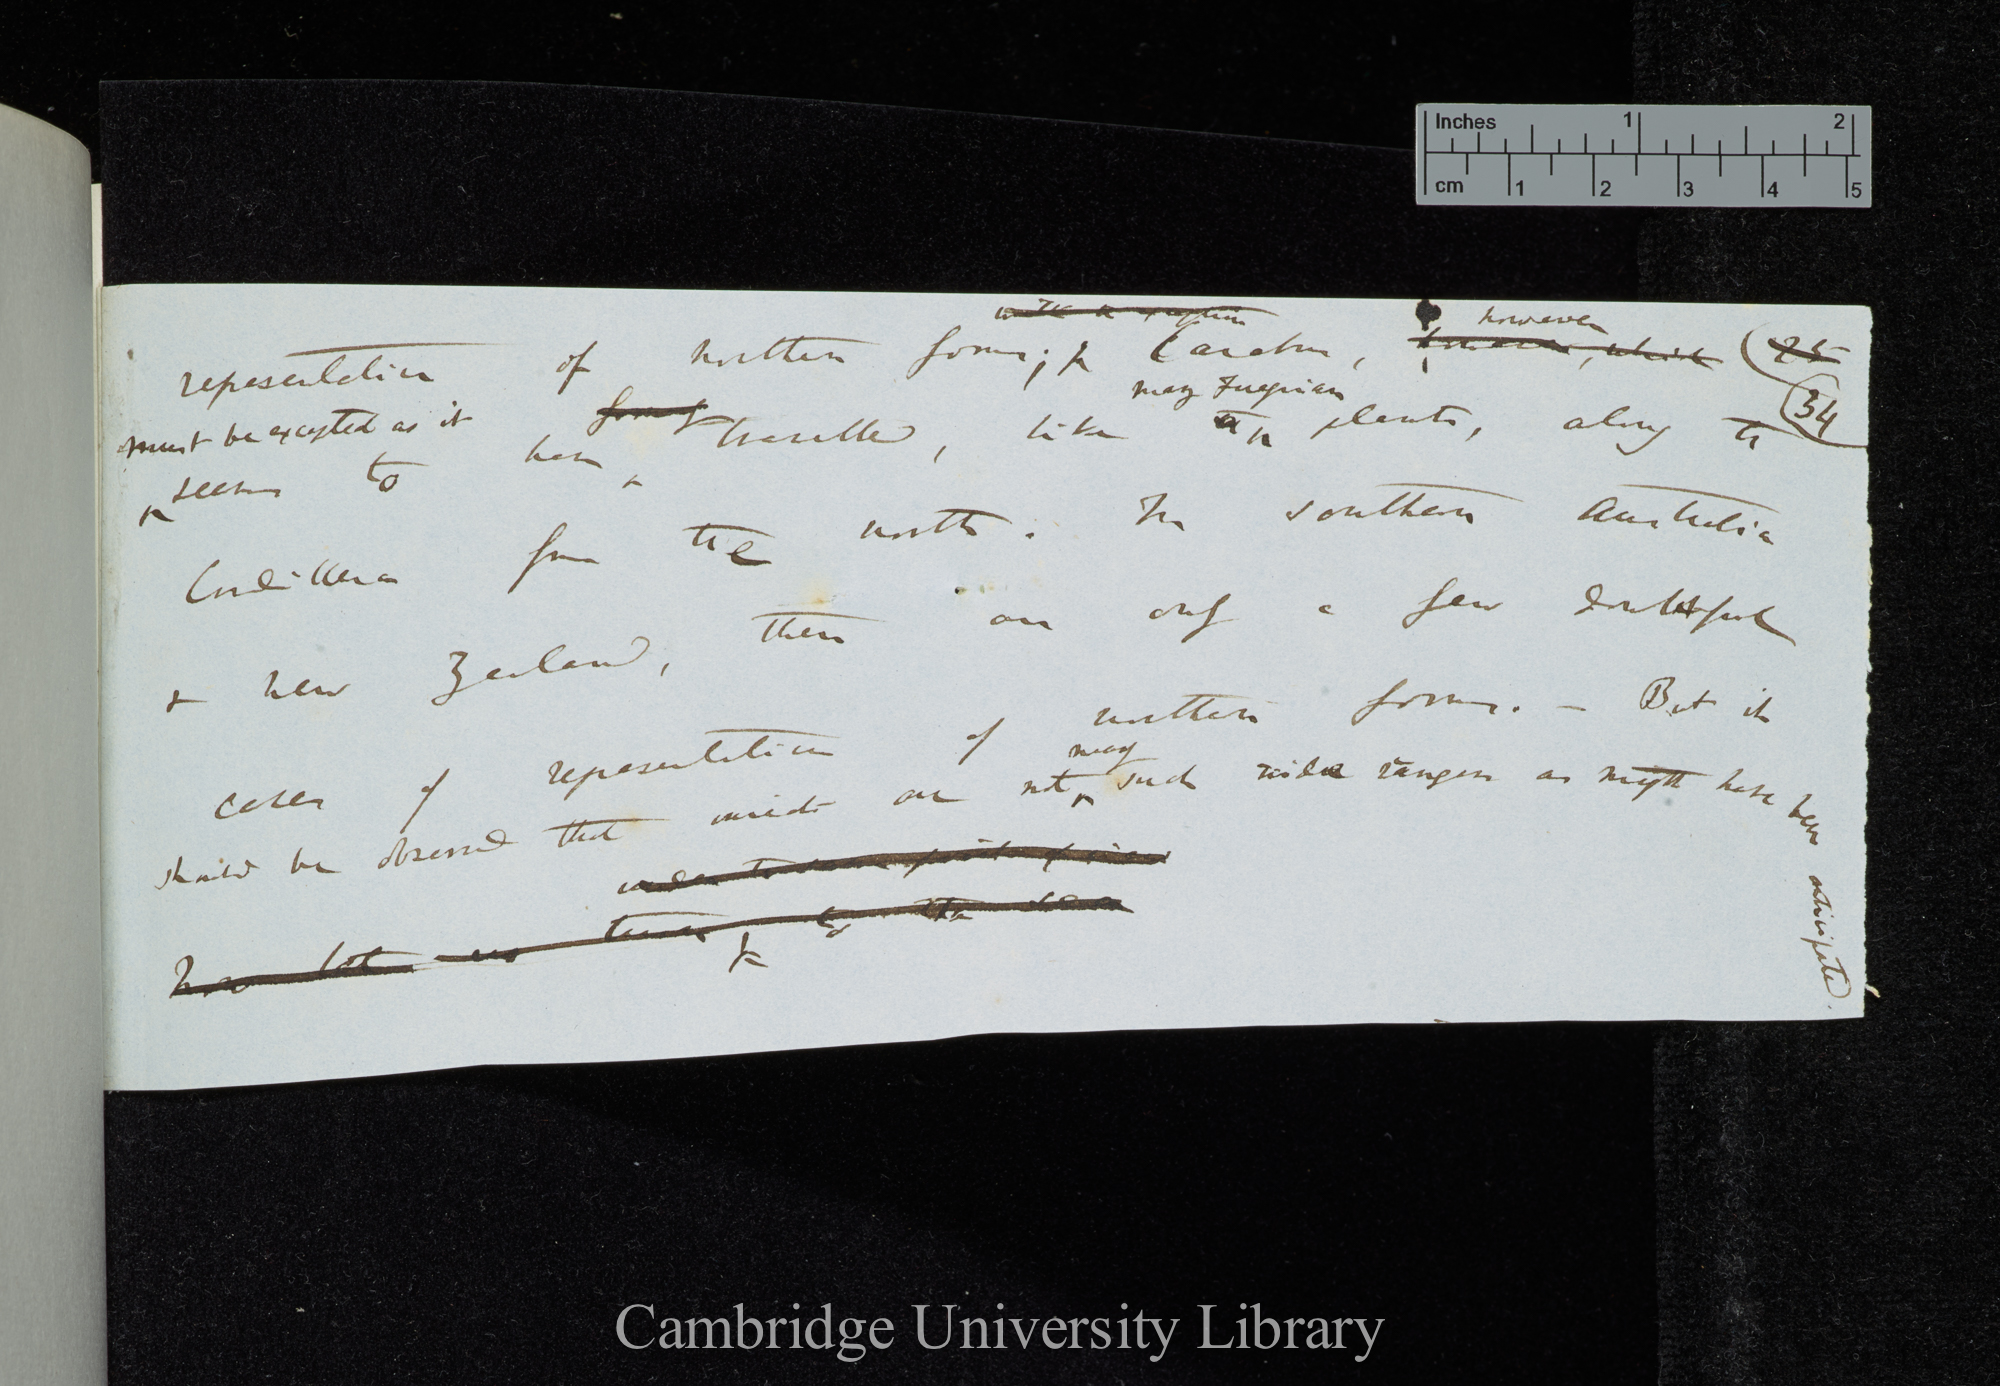 Inches 1 2
cm 1 2 3 4 5
with the exception
however
representation of northern forms; Carabus, however, which 25
34
many Fuegian
must be excepted as it formerly
seems to have travelled, like the plants, along the
Cordillera from the north. In southern Australia
& New Zealand, there are only a few doubtful
cases of representation of northern forms. — But it
many
should be observed that insects are not such wide rangers as might have been anticipated.
under
has not to the sea
Cambridge University Library